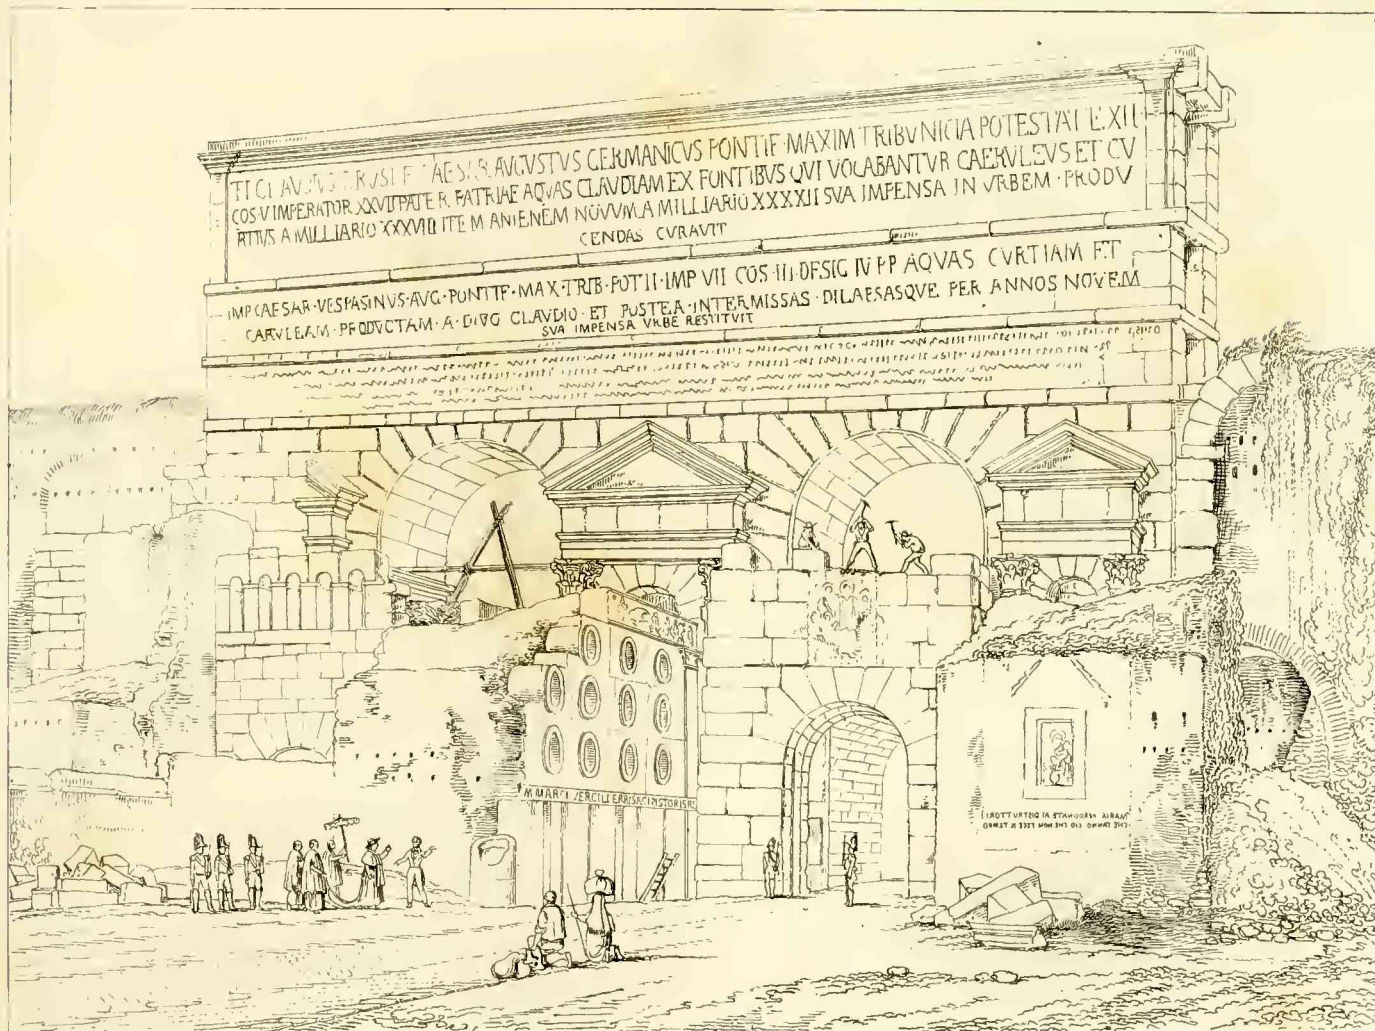 TI CLAVDIVS DRVSI F CAESAR AVGVSTVS GERMANICVS PONTIF · MAXIM TRIBVNICIA POTESTATE XII
COS · V IMPERATOR XXVII PATER PATRIAE AQVAS CLAVDIAM EX FONTIBVS QVI VOCABANTVR CAERVLEVS ET CV
RTIVS A MILLIARIO XXXVIII ITEM ANIENEM NOVVM A MILLIARIO XXXXII SVA IMPENSA IN VRBEM · PRODV
CENDAS CVRAVIT
IMP CAESAR · VESPASINVS · AVG · PONTIF · MAX · TRIB · POT II · IMP VII COS · III · DESIG IV P P AQVAS CVRTIAM ET
CARVLEAM · PRODVCTAM · A · DIVO CLAVDIO · ET POSTEA · INTERMISSAS · DILAPSASQVE PER ANNOS NOVEM
SVA IMPENSA VRBE RESTITVIT
MARIA PERDONATE AI DISTRVTTORI
CHE FANNO CIO CHE NON FECE IL TEMPO